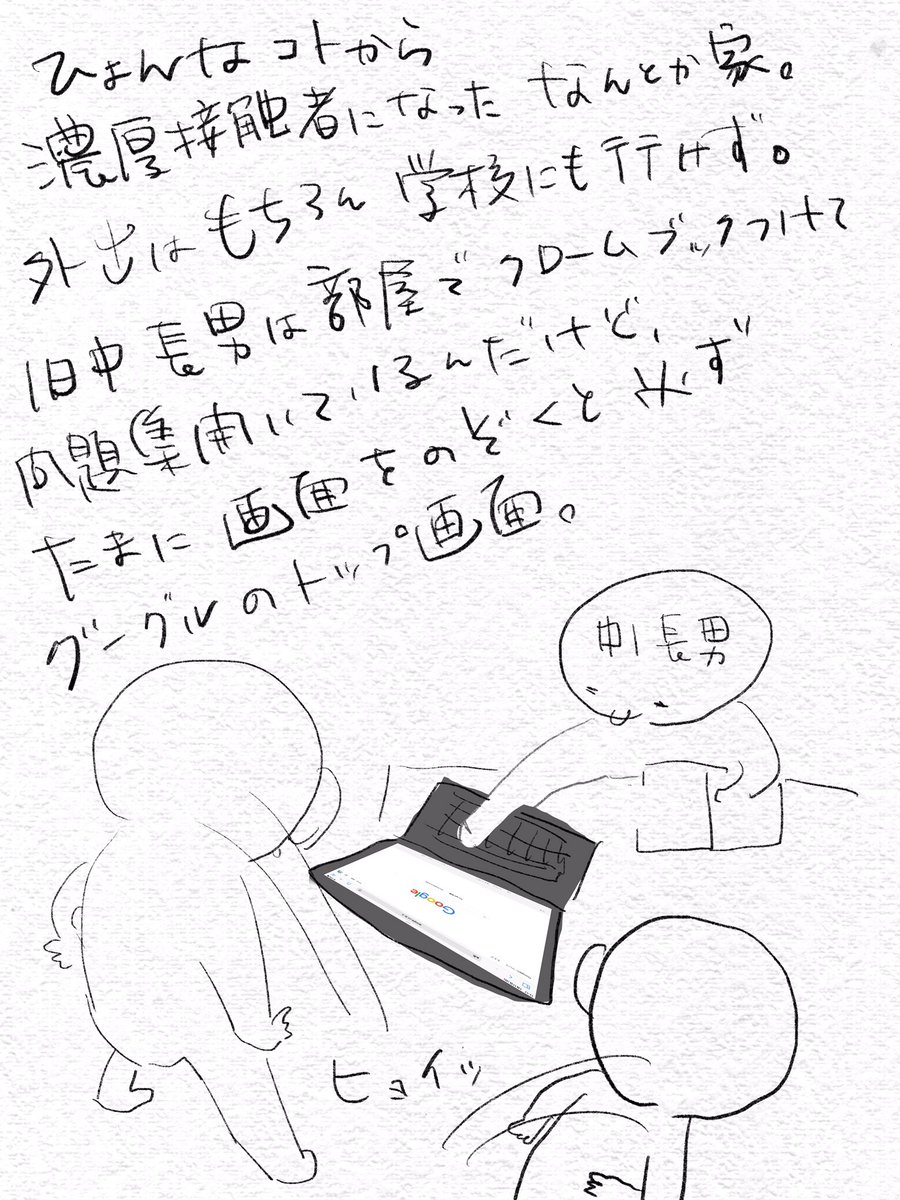 ひょんなコトから
濃厚接触者になった なんとか家。
外出はもちろん 学校にも行けず。
日中長男は部屋でクロームブックつけて
問題集開いているんだけど、
たまに画面をのぞくと必ず
グーグルのトップ画面。
中1長男
Google
ヒョイッ